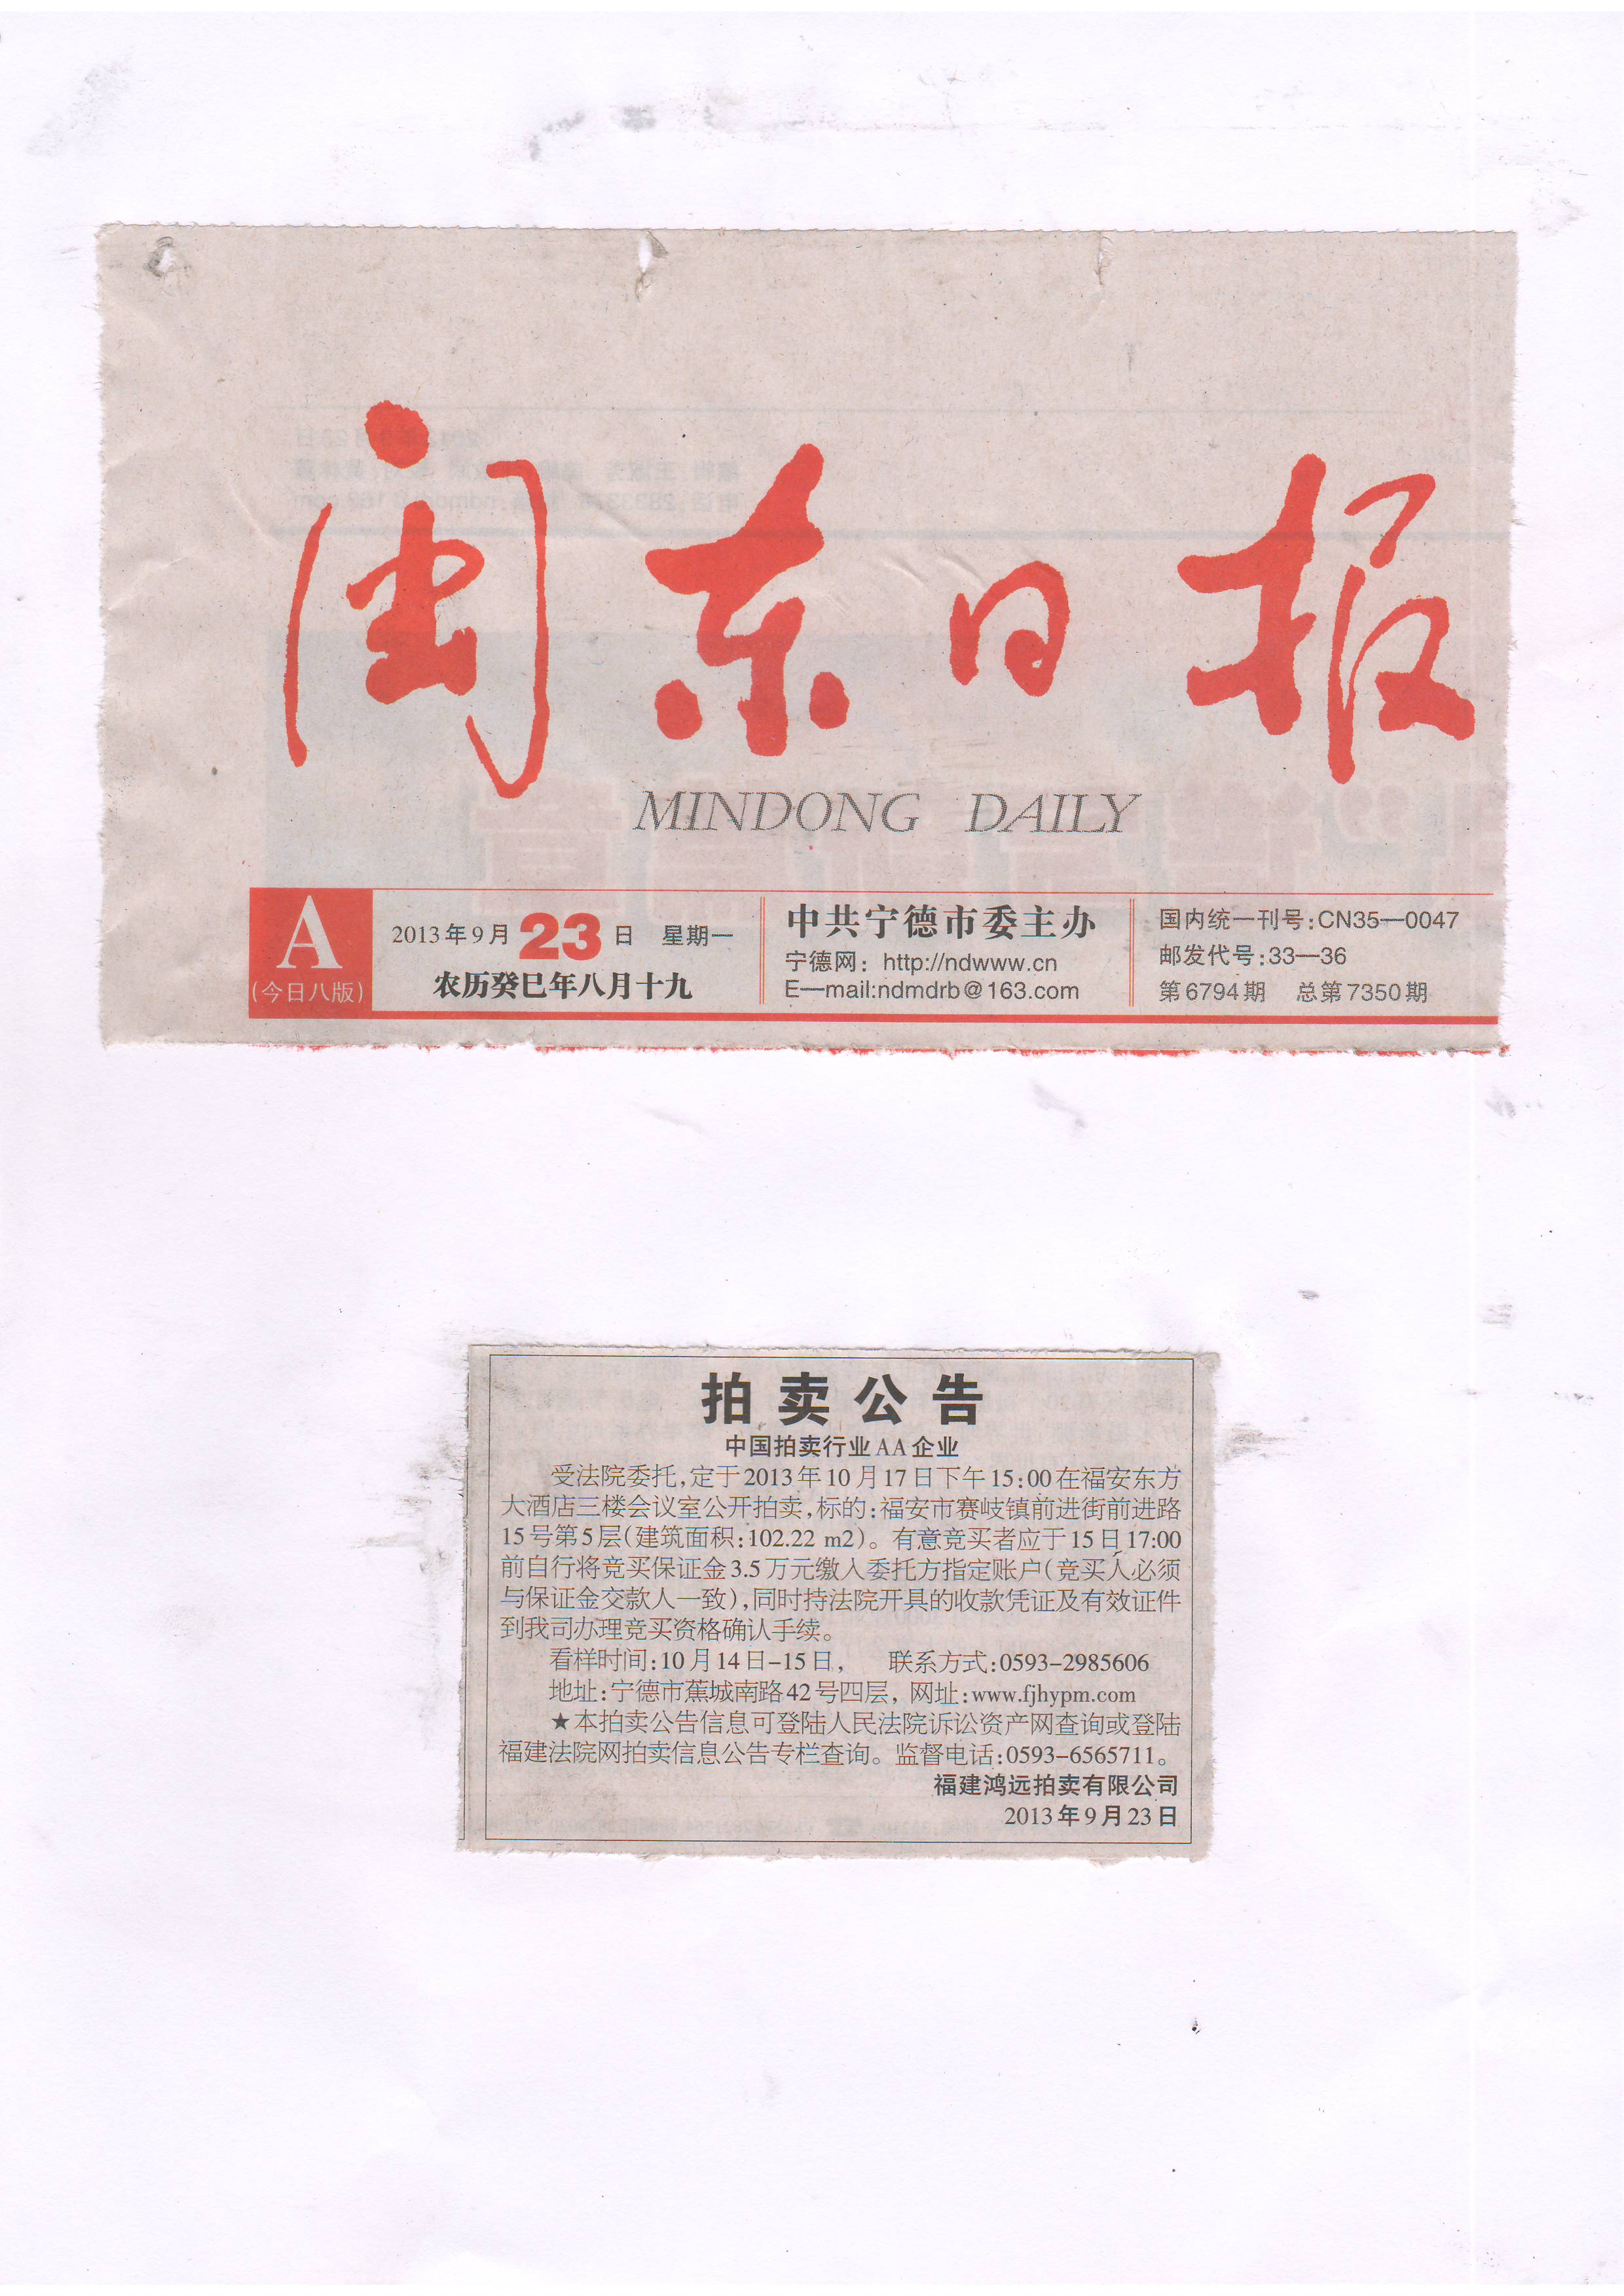 闽东日报
MINDONG DAILY
A
(今日八版)
2013年9月23日 星期一
农历癸巳年八月十九
中共宁德市委主办
宁德网：http://ndwww.cn
E—mail:ndmdrb@163.com
国内统一刊号:CN35—0047
邮发代号:33—36
第6794期 总第7350期
拍卖公告
中国拍卖行业AA企业
受法院委托,定于2013年10月17日下午15:00在福安东方
大酒店三楼会议室公开拍卖,标的:福安市赛岐镇前进街前进路
15号第5层(建筑面积:102.22 m2)。有意竞买者应于15日17:00
前自行将竞买保证金3.5万元缴入委托方指定账户(竞买人必须
与保证金交款人一致),同时持法院开具的收款凭证及有效证件
到我司办理竞买资格确认手续。
看样时间:10月14日-15日, 联系方式:0593-2985606
地址:宁德市蕉城南路42号四层, 网址:www.fjhypm.com
★本拍卖公告信息可登陆人民法院诉讼资产网查询或登陆
福建法院网拍卖信息公告专栏查询。监督电话:0593-6565711。
福建鸿远拍卖有限公司
2013年9月23日